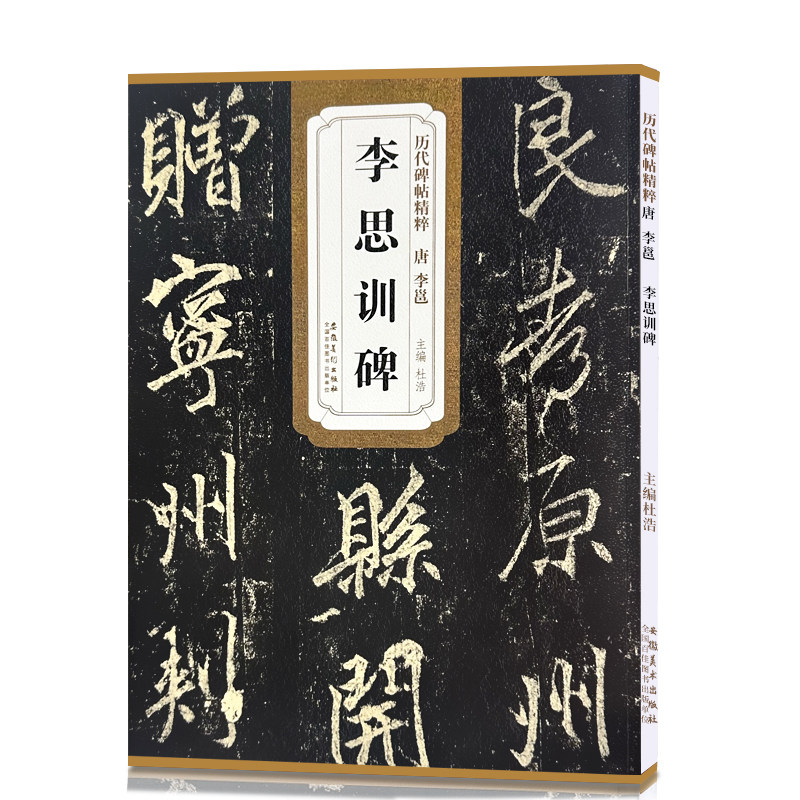 历代碑帖精粹 唐 李邕
主编 杜浩
李思训碑
安徽美术出版社
全国百佳图书出版单位
良
原州
縣開
贈寧州刺
历代碑帖精粹 唐 李邕 李思训碑 主编杜浩
安徽美术出版社
全国百佳图书出版单位